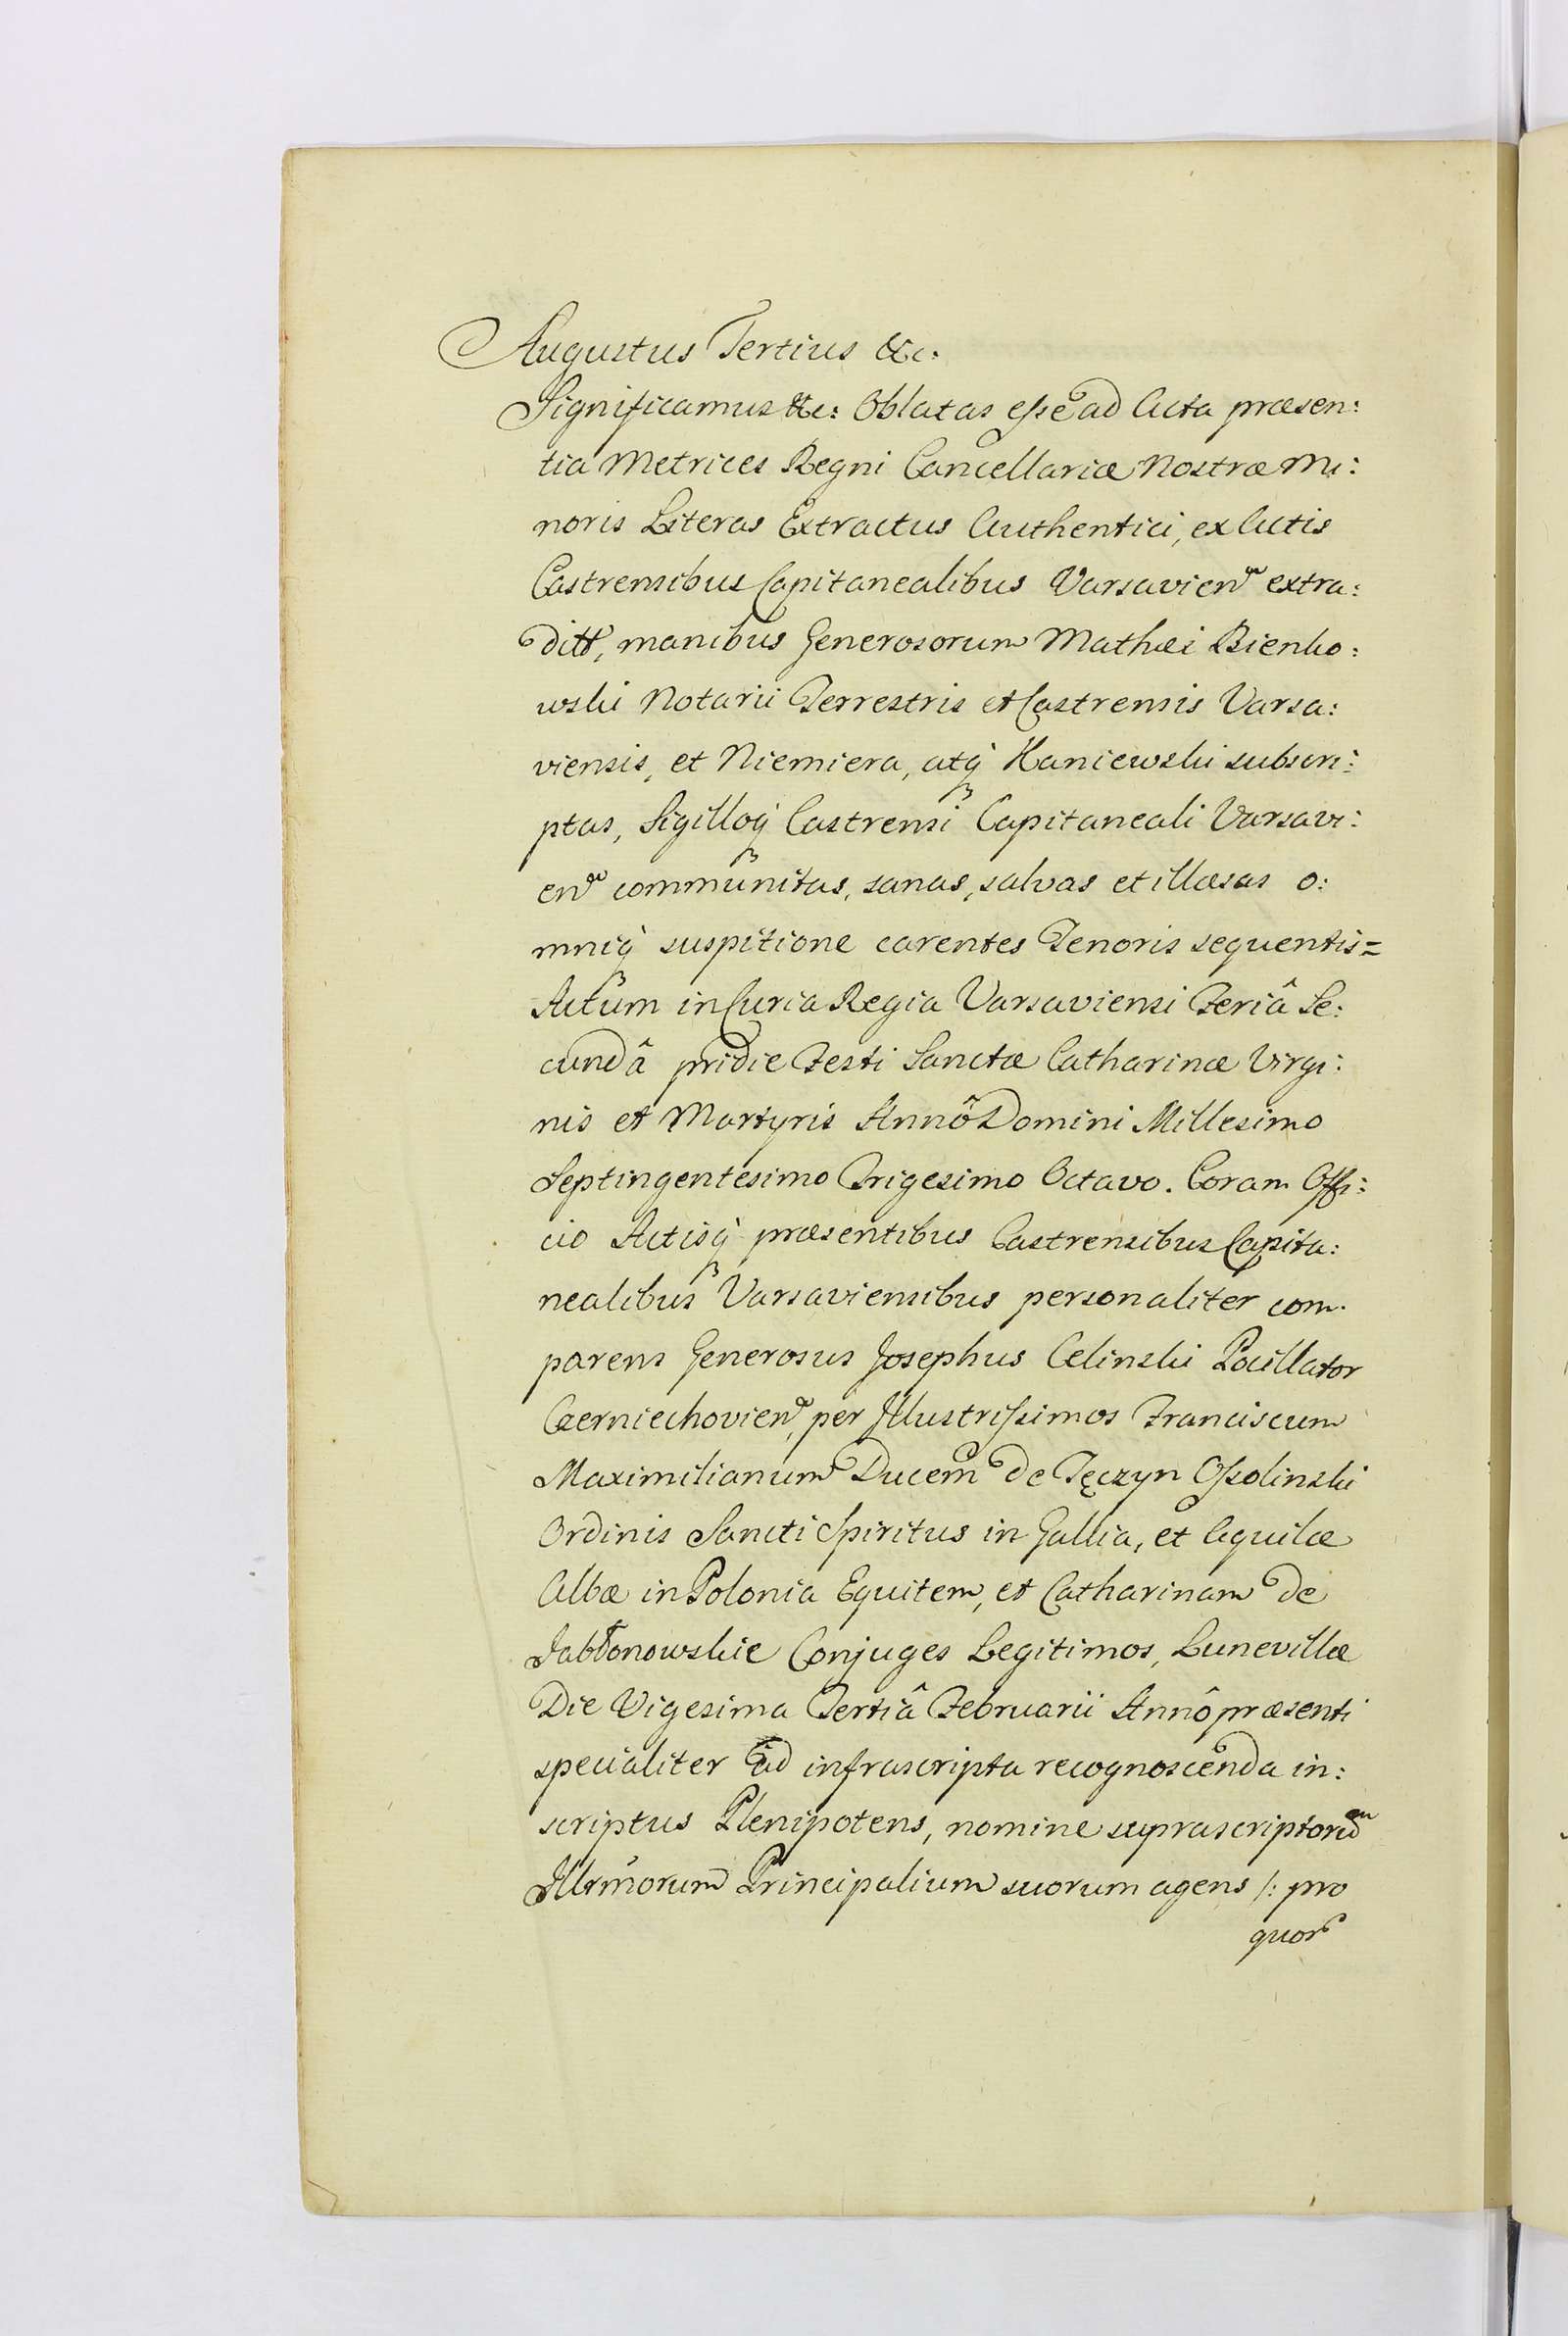 Augustus Tertius &c:
Significamus &c: Oblatas esse ad Acta præsen:
tia Metrices Regni Cancellariæ Nostræ Mi:
noris Literas Extractus Authentici, ex Actis
Castrensibus Capitanealibus Varsavien extra:
ditt, manibus Generosorum Mathæi Bienko:
wski Notarii Terrestris et Castrensis Varsa:
viensis, et Niemiera, atq Kaniewski subscri:
ptas, Sigilloq Castrensi Capitaneali Varsavi:
en communitas, sanas, salvas et illæsas o:
mniq suspitione carentes Tenoris sequentis=
Actum in Curia Regia Varsaviensi Feriâ Se:
cundâ pridie Festi Sanctæ Catharinæ Virgi:
nis et Martyris Annô Domini Millesimo
Septingentesimo Trigesimo Octavo. Coram Offi:
cio Actisq præsentibus Castrensibus Capita:
nealibus Varsaviensibus personaliter com.
parens Generosus Josephus Celinski Pocillator
Czerniechovien, per Illustrissimos Franciscum
Maximilianum Ducem de Tęczyn Ossolinski
Ordinis Sancti Spiritus in Gallia, et Aquilæ
Albæ in Polonia Equitem, et Catharinam de
Jabłonowskie Conjuges Legitimos, Lunevillæ
Die Vigesima Tertiâ Februarii Annô præsenti
specialiter ad infrascripta recognoscenda in:
scriptus Plenipotens, nomine suprascriptorum
Illrmorum Principalium suorum agens /: pro
quor